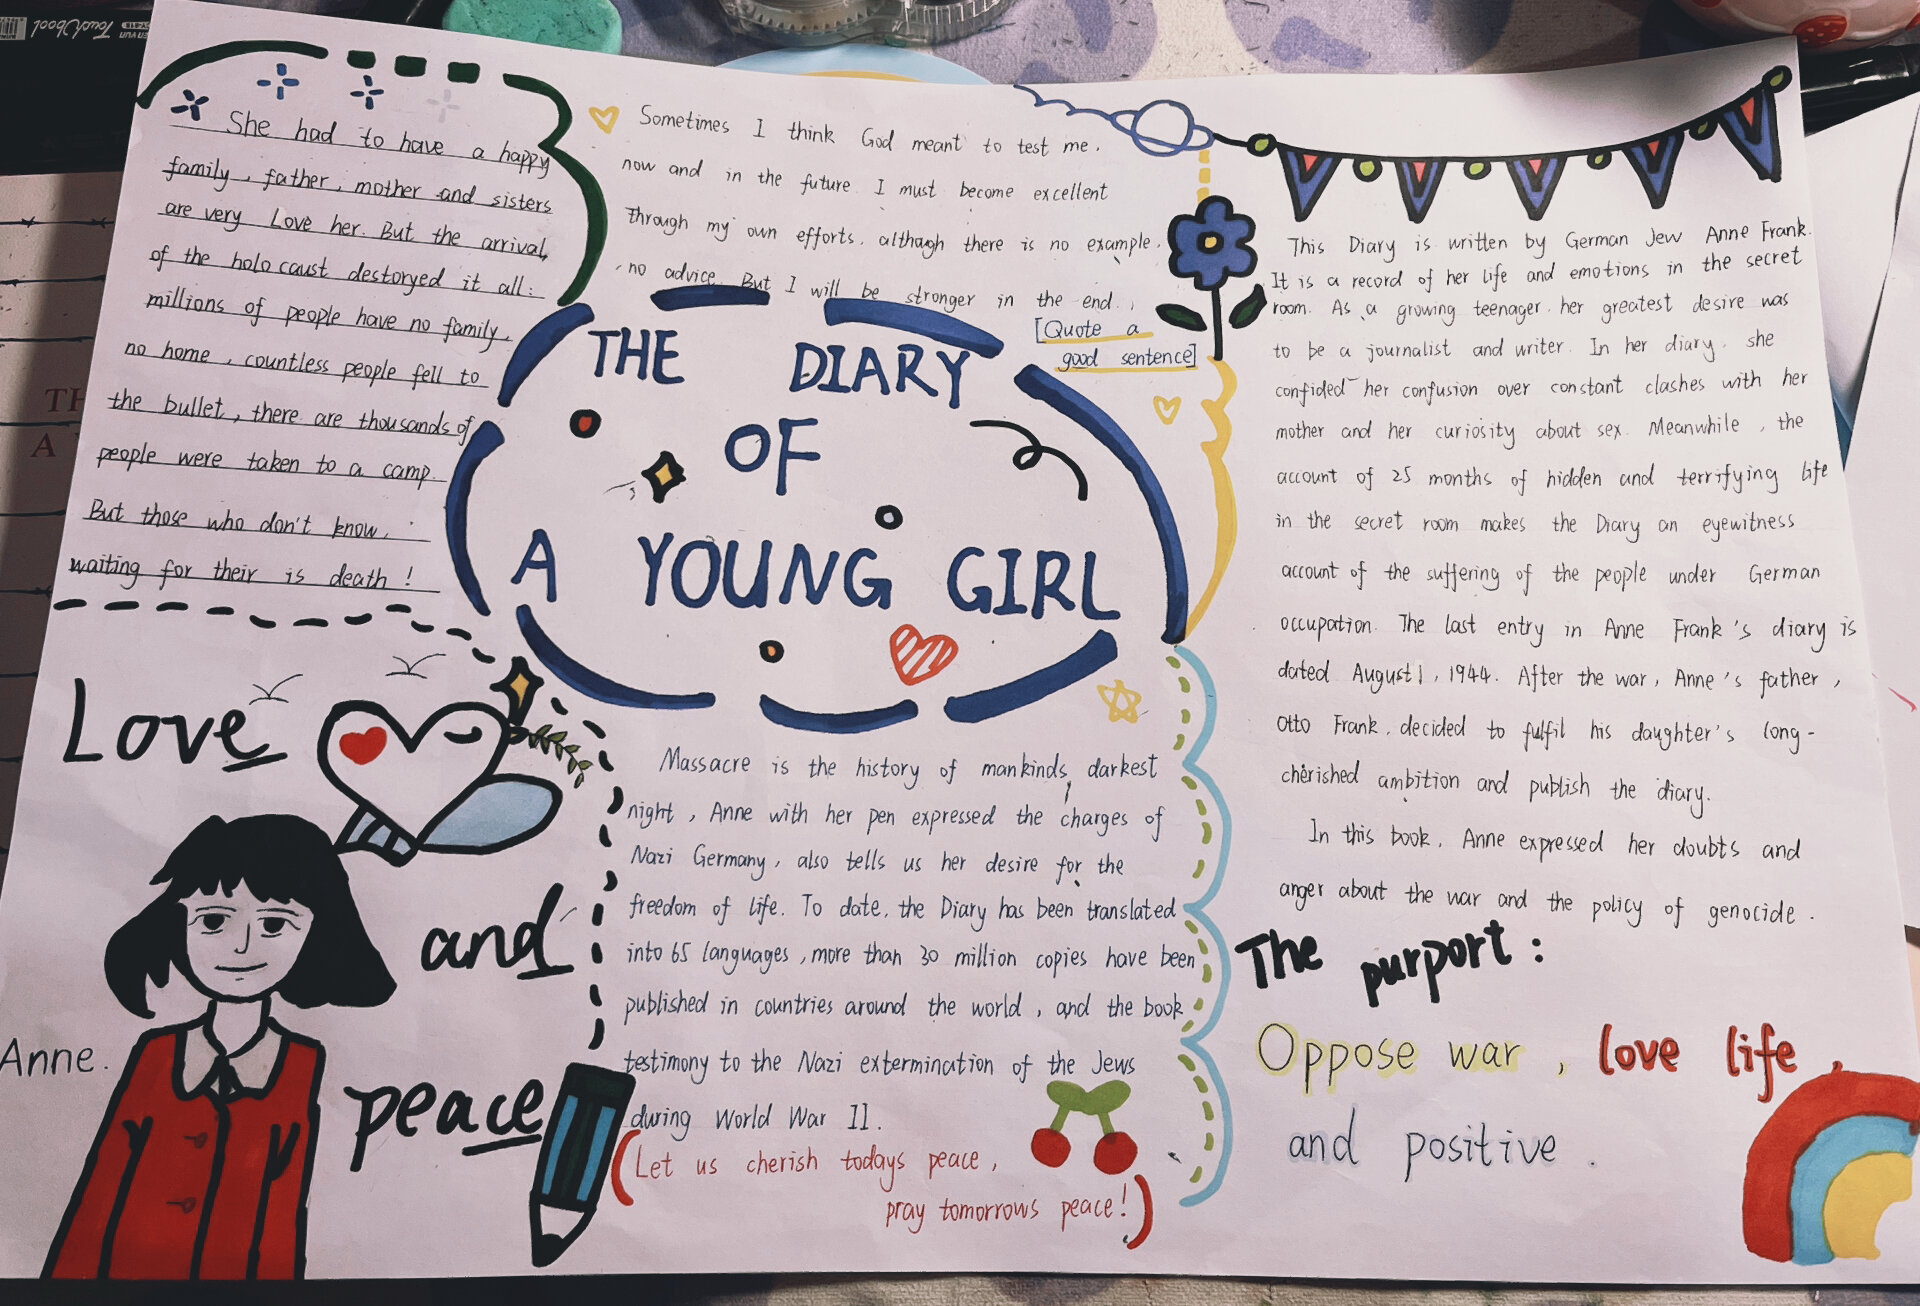 She had to have a happy
family, father, mother and sisters
are very Love her. But the arrival
of the holocaust destoryed it all:
millions of people have no family,
no home, countless people fell to
the bullet, there are thousands of
people were taken to a camp.
But those who don't know,
waiting for their is death!
Sometimes I think God meant to test me,
now and in the future. I must become excellent
through my own efforts, although there is no example,
no advice. But I will be stronger in the end.
[Quote a
good sentence]
THE DIARY
OF
A YOUNG GIRL
This Diary is written by German Jew Anne Frank.
It is a record of her life and emotions in the secret
room. As a growing teenager, her greatest desire was
to be a journalist and writer. In her diary, she
confided her confusion over constant clashes with her
mother and her curiosity about sex. Meanwhile, the
account of 25 months of hidden and terrifying life
in the secret room makes the Diary an eyewitness
account of the suffering of the people under German
occupation. The last entry in Anne Frank's diary is
dated August 1, 1944. After the war, Anne's father,
Otto Frank, decided to fulfil his daughter's long-
cherished ambition and publish the diary.
In this book, Anne expressed her doubts and
anger about the war and the policy of genocide.
The purport:
Oppose war, love life,
and positive.
Love
and
peace
Anne.
Massacre is the history of mankinds, darkest
night, Anne with her pen expressed the charges of
Nazi Germany, also tells us her desire for the
freedom of life. To date, the Diary has been translated
into 65 languages, more than 30 million copies have been
published in countries around the world, and the book
testimony to the Nazi extermination of the Jews
during World War II.
(Let us cherish todays peace,
pray tomorrows peace!)
Touch cool